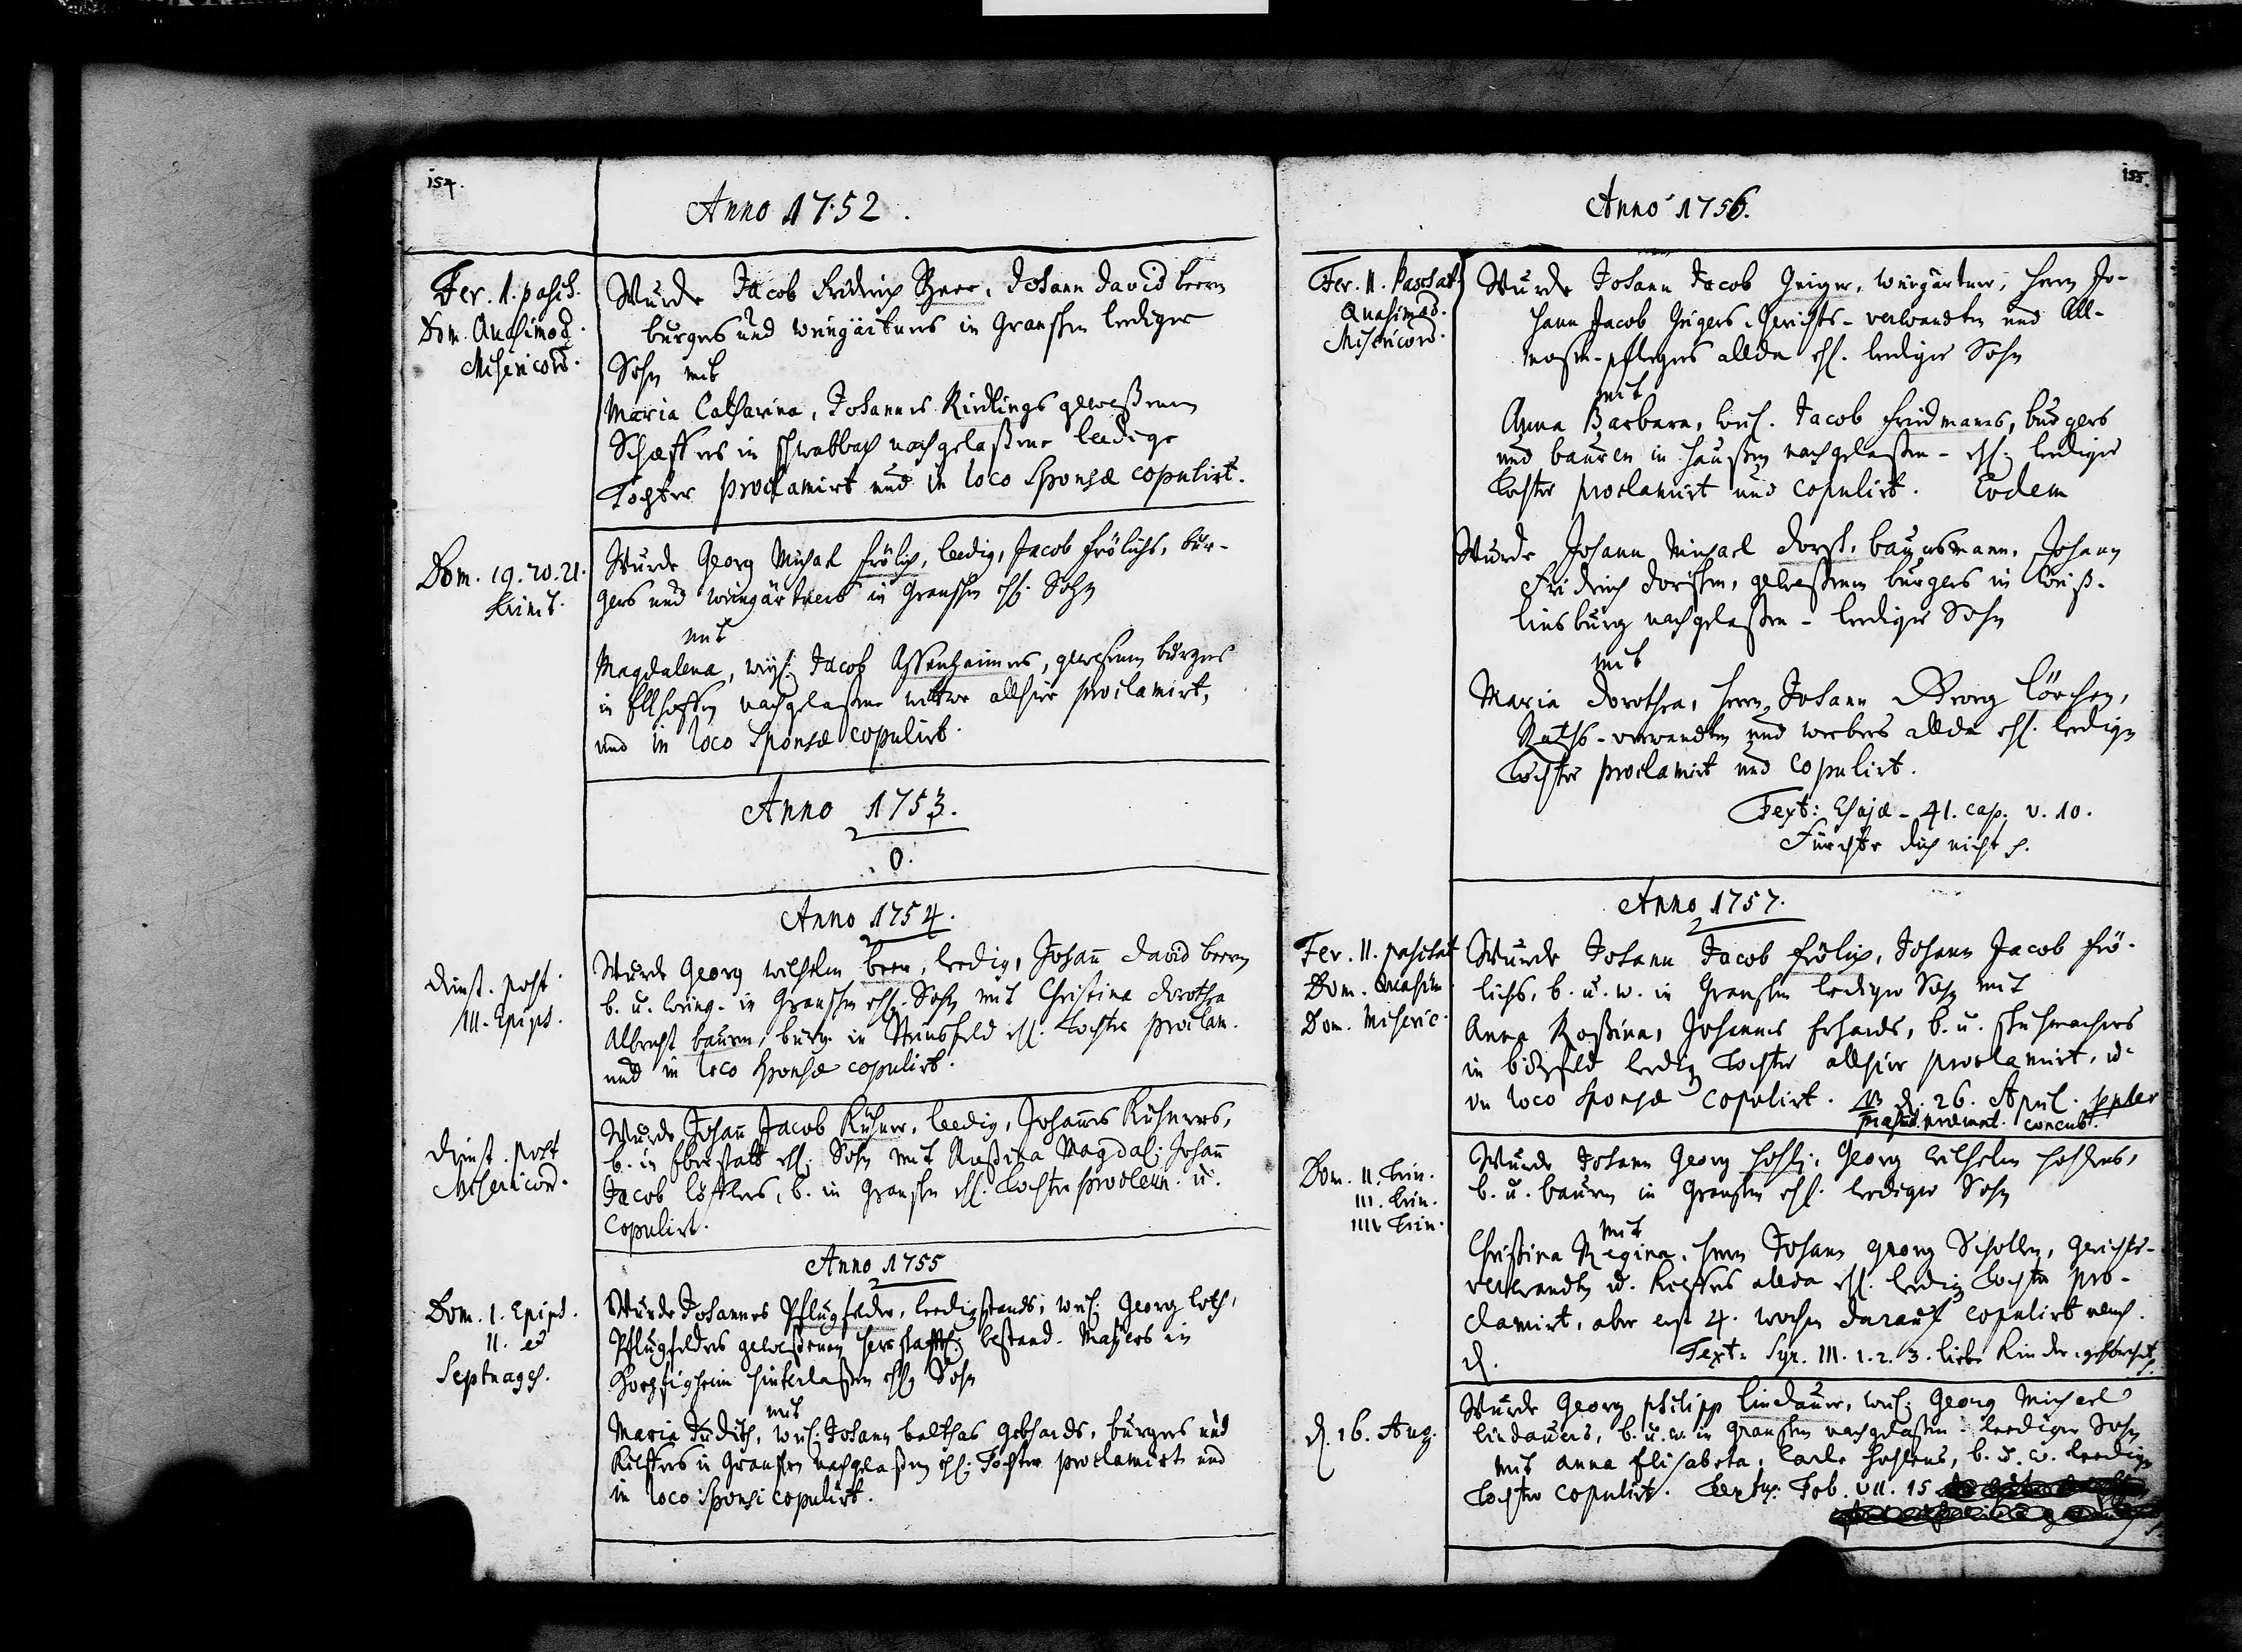 154.
Anno 1752.
Fer. 1. pasch.
Dom. Quasimod.
Misericord.
Wurde Jacob Fridrich Beer, Johann David Beern
burgers und weingärtners in Grantschen lediger
Sohn mit
Maria Catharina, Johannes Kindlings geweßenen
Schäffers in Schwabbach nachgelaßene ledige
Tochter proclamirt und in loco Sponsæ copulirt.
Dom. 19. 20. 21.
Trinit.
Wurde Georg Michael Frölich, ledig, Jacob Frölichs, bur-
gers und weingärtners in Grantschen ehl. Sohn
mit
Magdalena, weyl. Jacob Assenheimers, gewesenen burgers
in Ellhoffen nachgelaßene wittwe allhier proclamirt,
und in loco Sponsæ copulirt.
Anno 1753.
0.
Anno 1754.
Dinst. post.
III. Epiph.
Wurde Georg Wilhelm Beer, ledig, Johann David Beern
b. u. weing. in Grantschen ehl. Sohn mit Christina Dorothea
Albrecht Bauren, burg. in Steinsfeld ehl. Tochter proclam.
und in loco Sponsæ copulirt.
Dinst. post
Misericord.
Wurde Johann Jacob Kühner, ledig, Johannes Kühners,
b. in Eberstatt ehl. Sohn mit Roßina Magdal. Johann
Jacob Löfflers, b. in Grantschen ehl. Tochter proclam. u.
copulirt.
Anno 1755
Dom. 1. Epiph.
II. et
Septuages.
Wurde Johannes Pflugfelder, ledig stands, weyl. Georg
Pflugfelders geweßenen herrschaftl. bestand-
hinterlaßen ehl. Sohn
mit
Maria Judith, weyl. Johann Balthas Gebhards, burgers und
Kieffers in Grantschen nachgelaßen ehl. Tochter proclamirt und
in loco Sponsi copulirt.
155.
Anno 1756.
Fer. II. Paschat.
Quasimod.
Misericord.
Wurde Johann Jacob Geiger, weingärtner, Herrn Jo-
hann Jacob Geigers, Gerichts-verwandten und All-
mosen-pflegers allda ehl. lediger Sohn
mit
Anna Barbara, weyl. Jacob Friedmanns, burgers
und bauren in Haußen nachgelaßen- ehl. lediger
Tochter proclamirt und copulirt. Eodem
Wurde Johann Michael Dorsch, baursmann, Johann
Fridrich Dorschen, geweßenen burgers in
linsburg nachgelaßen- lediger Sohn
mit
Maria Dorothea, Herrn Johann Georg Lörchen,
Raths-verwandten und webers allda ehl. ledige
Tochter proclamirt und copulirt.
Text: Esajæ- 41. cap. v. 10.
Fürchte dich nicht
Anno 1757.
Fer. II. paschat
Dom. Quasim
Dom. Miseric.
Wurde Johann Jacob Frölich, Johann Jacob Frö-
lichs, b. u. w. in Grantschen lediger Sohn mit
Anna Roßina, Johannes Erhards, b. u. schuhmachers
in bitzfeld ledig Tochter allhier proclamirt, u.
in loco Sponsæ copulirt. NB d. 26. April. ppter
concub.
Dom. II. Trin.
III. Trin.
IIII. Trin.
Wurde Johann Georg Hohl, Georg Wilhelm Hohlens,
b. u. bauren in Grantschen ehl. lediger Sohn
mit
Christina Regina, Herrn Johann Georg Schollen, Gerichts-
verwandten u. Kieffers allda ehl. ledig Tochter pro-
clamirt, aber erst 4. wochen darauf copulirt
d. Text: Syr. III. 1. 2. 3. liebe Kinder gehorchet
d. 16. Aug.
Wurde Georg Philipp Lindauer, weyl. Georg Michael
Lindauers, b. u. w. in Grantschen nachgelaßen- lediger Sohn
mit Anna Elisabeta, Carle Hohlens, b. u. w. ledige
Tochter copulirt. Textus: Tob. VII. 15